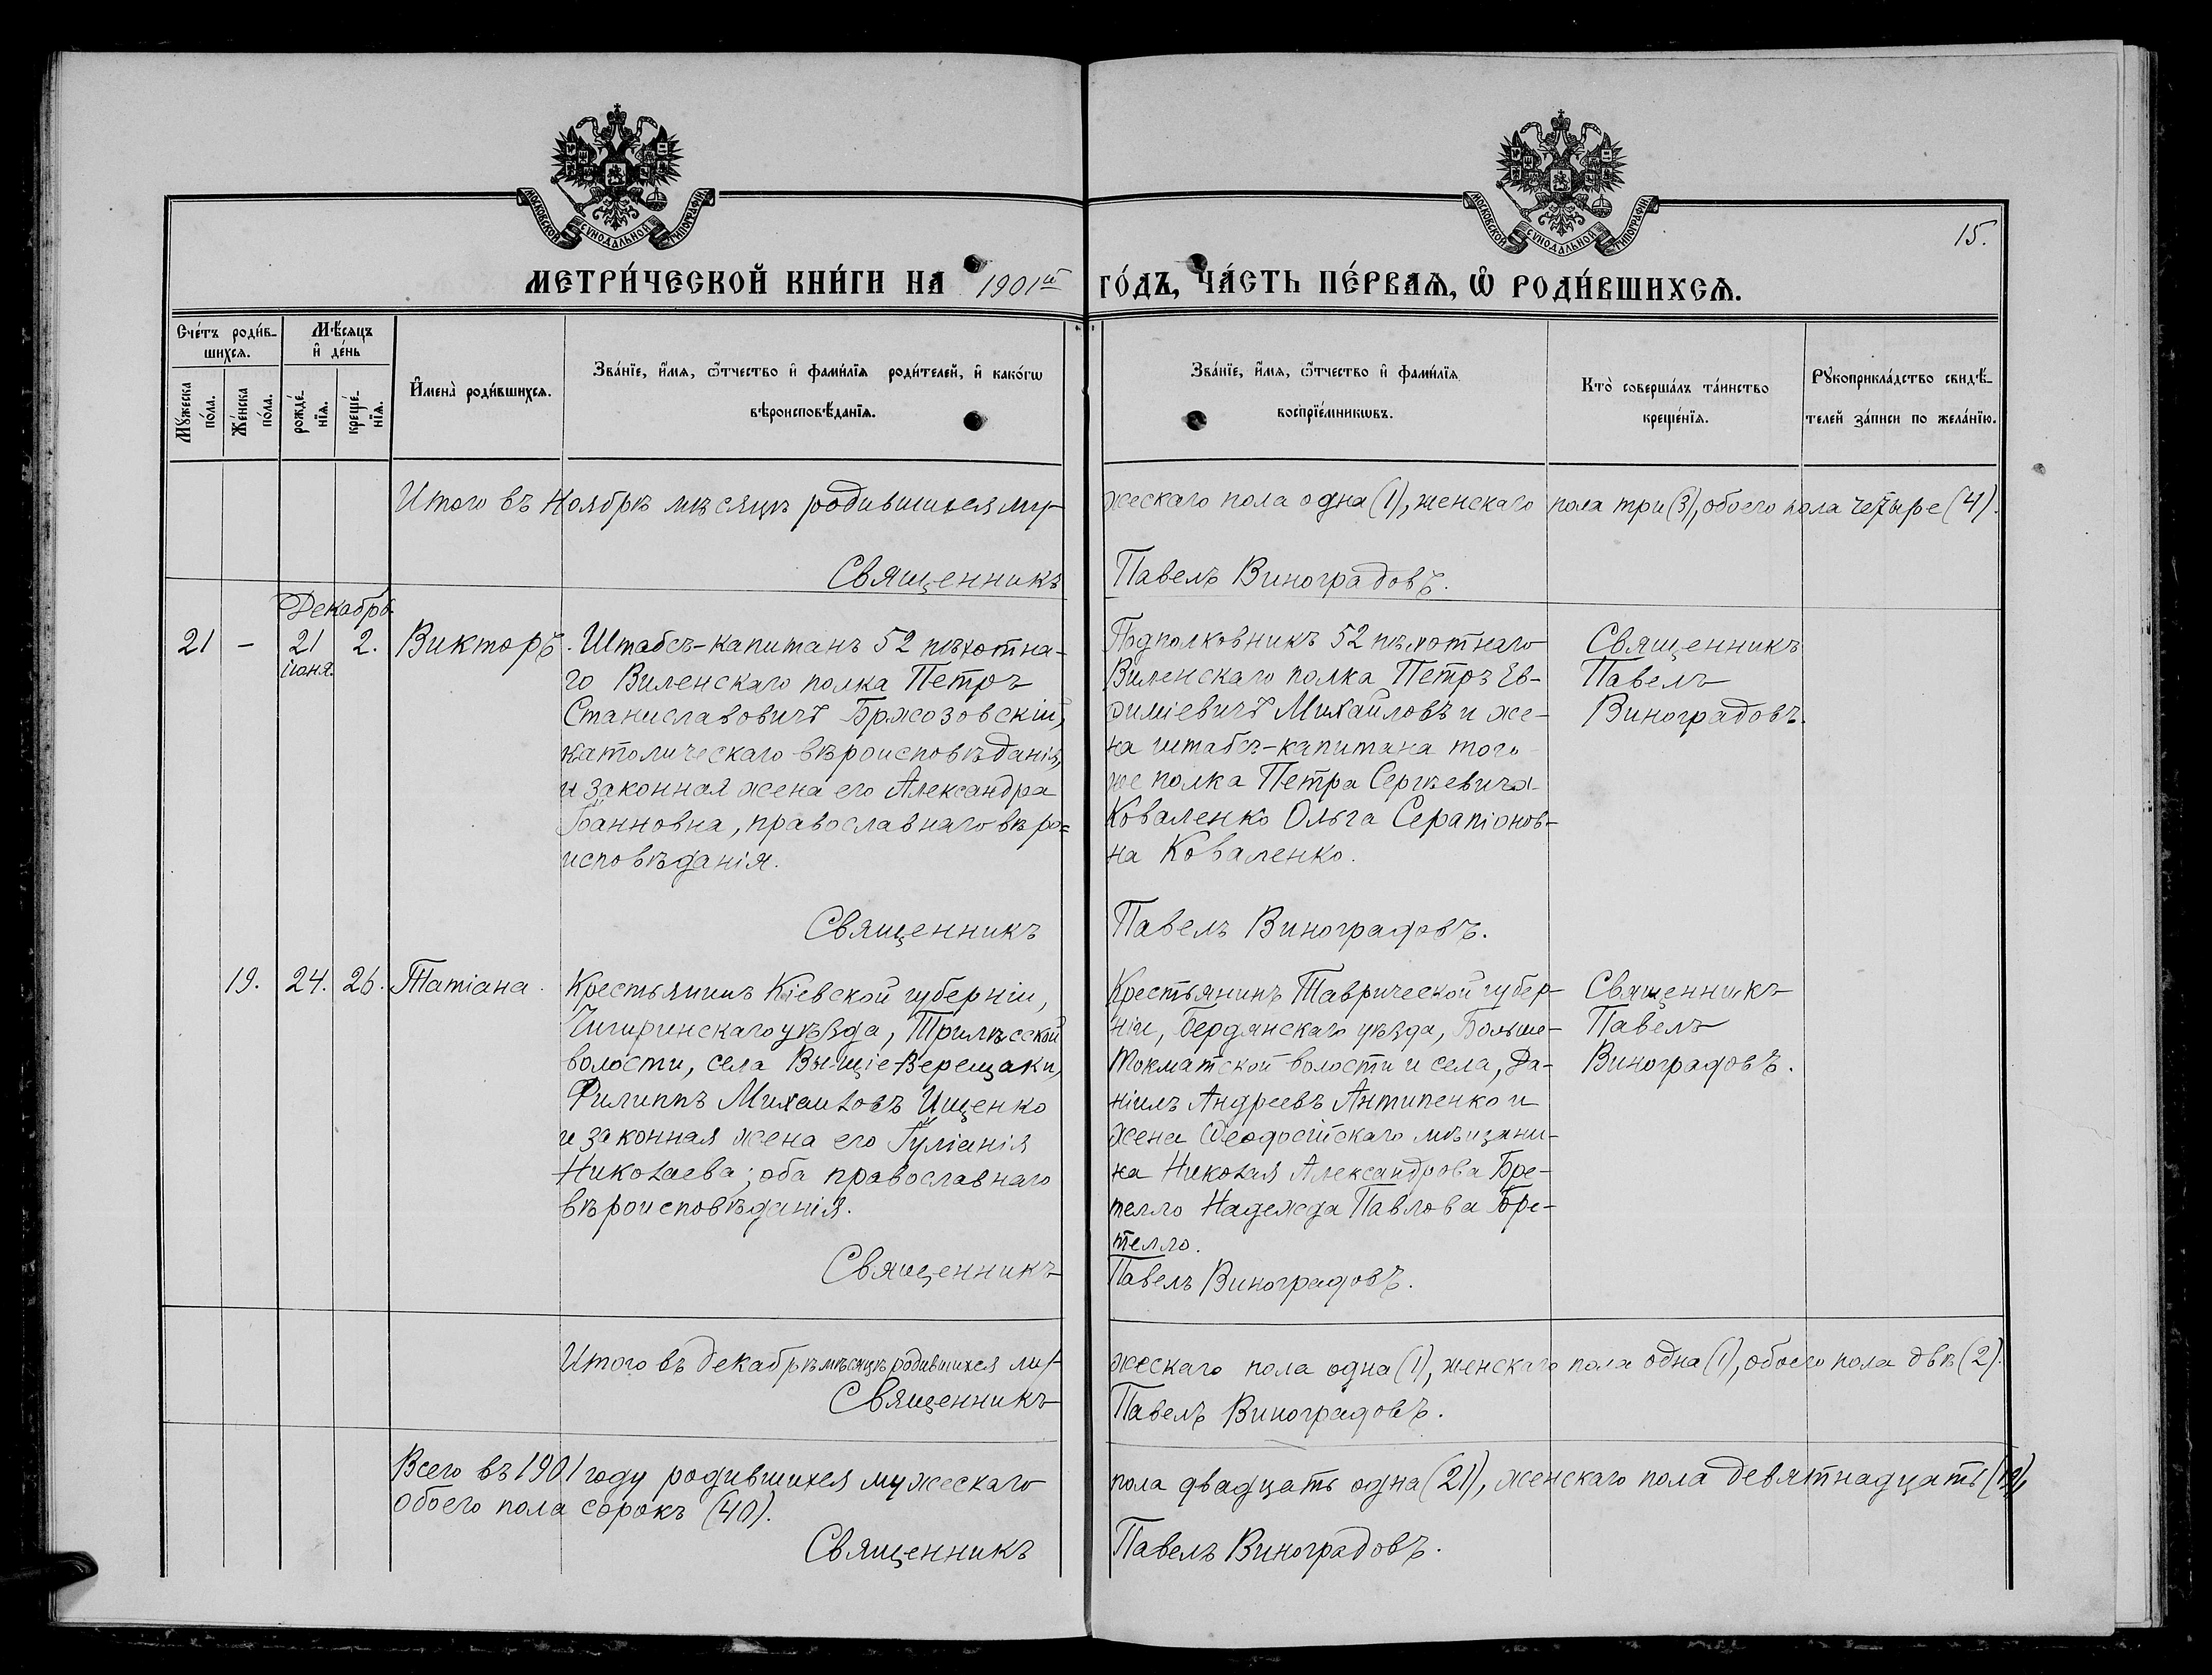 МОСКОВСКОЙ СѴНОДАЛЬНОЙ ТИПОГРАФІИ
МОСКОВСКОЙ СѴНОДАЛЬНОЙ ТИПОГРАФІИ
15.
МЕТРИ́ЧЕСКОЙ КНИ́ГИ НА 1901й ГО́ДЪ, ЧА́СТЬ ПЕ́РВАѦ, Ѡ҆ РОДИ́ВШИХСѦ.
Сче́тъ роди́в-
шихсѧ.
Мꙋ́жеска по́ла.
Же́нска по́ла.
Мѣ́сѧцъ
и҆ де́нь
рожде́-
нїѧ.
креще́-
нїѧ.
И҆мена̀ роди́вшихсѧ.
Зва́нїе, и҆́мѧ, ѻ҆́тчество и҆ фами́лїѧ роди́телей, и҆ како́гѡ
вѣроисповѣ́данїѧ.
Зва́нїе, и҆́мѧ, ѻ҆́тчество и҆ фами́лїѧ
воспрїе́мникѡвъ.
Кто̀ соверша́лъ та́инство
креще́нїѧ.
Рꙋкоприкла́дство свидѣ́-
телей за́писи по жела́нїю.
Итого въ Ноябрѣ мѣсяцѣ родившихся му-
жескаго пола одна (1), женскаго пола три (3), обоего пола четыре (4).
Священникъ Павелъ Виноградовъ.
Декабрь.
21 - 21 2. Викторъ.
іюня.
Штабсъ-капитанъ 52 пѣхотна-
го Виленскаго полка Петръ
Станиславовичъ Бржозовскій,
католическаго вѣроисповѣданія,
и законная жена его Александра
Іоанновна, православнаго вѣро=
исповѣданія.
Подполковникъ 52 пѣхотнаго
Виленскаго полка Петръ Ев-
фиміевичъ Михайловъ и же-
на штабсъ-капитана того
же полка Петра Сергѣевича
Коваленко Ольга Серапіонов-
на Коваленко.
Священникъ
Павелъ
Виноградовъ.
Священникъ Павелъ Виноградовъ.
19. 24. 26. Татіана.
Крестьянинъ Кіевской губерніи,
Чигиринскаго уѣзда, Трилѣсской
волости, села Высшіе-Верещаки,
Филиппъ Михаиловъ Ищенко
и законная жена его Іуліанія
Николаева; оба православнаго
вѣроисповѣданія.
Крестьянинъ Таврической губер-
ніи, Бердянскаго уѣзда, Больше-
Токматской волости и села, Да-
ніилъ Андреевъ Антипенко и
жена Ѳеодосійскаго мѣщани-
на Николая Александрова Бре-
телло Надежда Павлова Бре-
телло.
Священникъ
Павелъ
Виноградовъ.
Священникъ Павелъ Виноградовъ.
Итого въ декабрѣ мѣсяцѣ родившихся му-
жескаго пола одна (1), женскаго пола одна (1), обоего пола двѣ (2).
Священникъ Павелъ Виноградовъ.
Всего въ 1901 году родившихся мужескаго
пола двадцать одна (21), женскаго пола девятнадцать (19),
обоего пола сорокъ (40).
Священникъ Павелъ Виноградовъ.